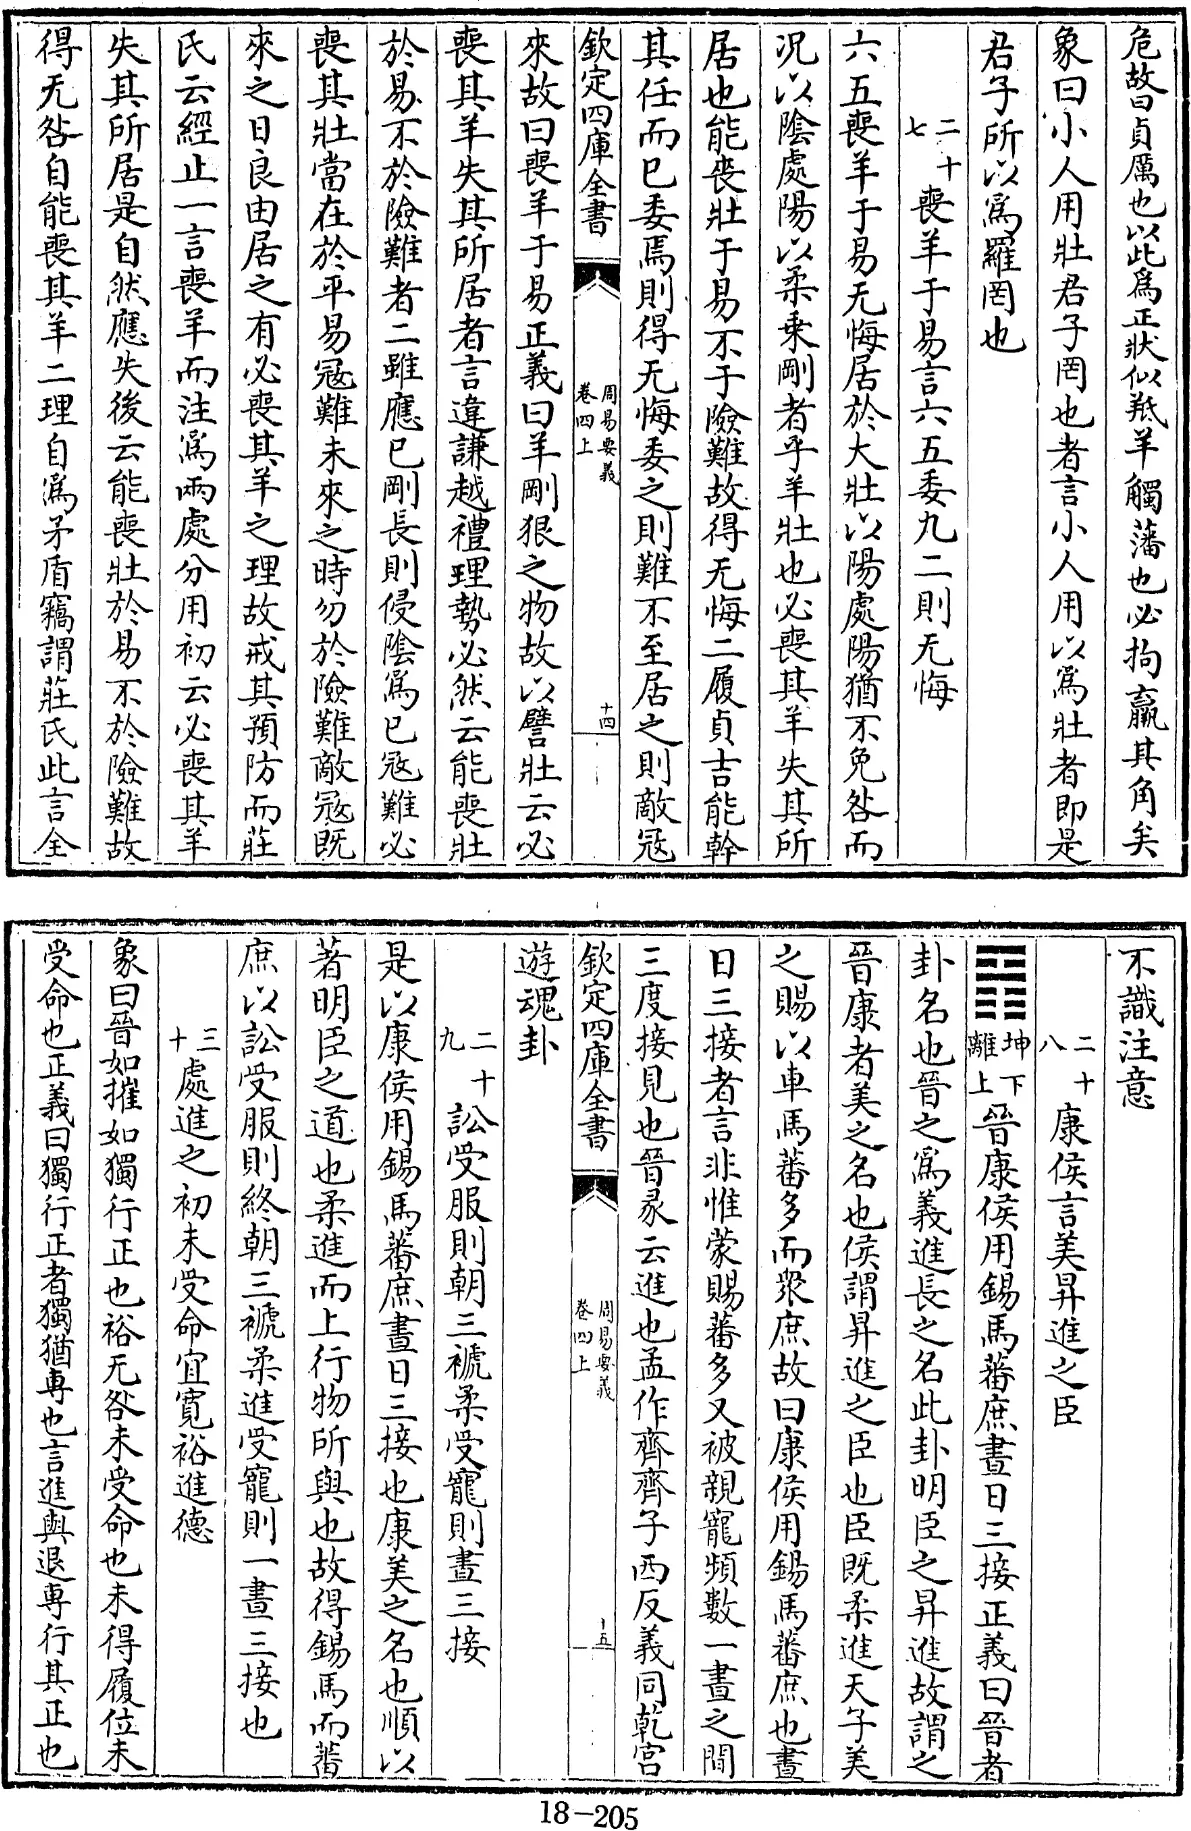 危故曰貞厲也以此爲正狀似羝羊觸藩也必拘羸其角矣
象曰小人用壯君子罔也者言小人用以爲壯者即是
君子所以爲羅罔也
二十七喪羊于易言六五委九二則无悔
六五喪羊于易无悔居於大壯以陽處陽猶不免咎而
況以陰處陽以柔乗剛者乎羊壯也必喪其羊失其所
居也能喪壯于易不于險難故得无悔二履貞吉能幹
其任而已委焉則得无悔委之則難不至居之則敵寇
欽定四庫全書
周易要義
卷四上
十四
來故曰喪羊于易正義曰羊剛狠之物故以譬壯云必
喪其羊失其所居者言違謙越禮理勢必然云能喪壯
於易不於險難者二雖應已剛長則侵陰爲已寇難必
喪其壯當在於平易寇難未來之時勿於險難敵寇既
來之日良由居之有必喪其羊之理故戒其預防而莊
氏云經止一言喪羊而注爲兩處分用初云必喪其羊
失其所居是自然應失後云能喪壯於易不於險難故
得无咎自能喪其羊二理自爲矛盾竊謂莊氏此言全
不識注意
二十八康侯言美昇進之臣
䷢坤下離上晉康侯用錫馬蕃庶晝日三接正義曰晉者
卦名也晉之爲義進長之名此卦明臣之昇進故謂之
晉康者美之名也侯謂昇進之臣也臣既柔進天子美
之賜以車馬蕃多而衆庶故曰康侯用錫馬蕃庶也晝
日三接者言非惟蒙賜蕃多又被親寵頻數一晝之間
三度接見也晉彖云進也孟作齊齊子西反義同乾宮
欽定四庫全書
周易要義
卷四上
十五
遊魂卦
二十九訟受服則朝三褫柔受寵則晝三接
是以康侯用錫馬蕃庶晝日三接也康美之名也順以
著明臣之道也柔進而上行物所與也故得錫馬而蕃
庶以訟受服則終朝三褫柔進受寵則一晝三接也
三十處進之初未受命宜寬裕進德
象曰晉如摧如獨行正也裕无咎未受命也未得履位未
受命也正義曰獨行正者獨猶專也言進與退專行其正也
18-205